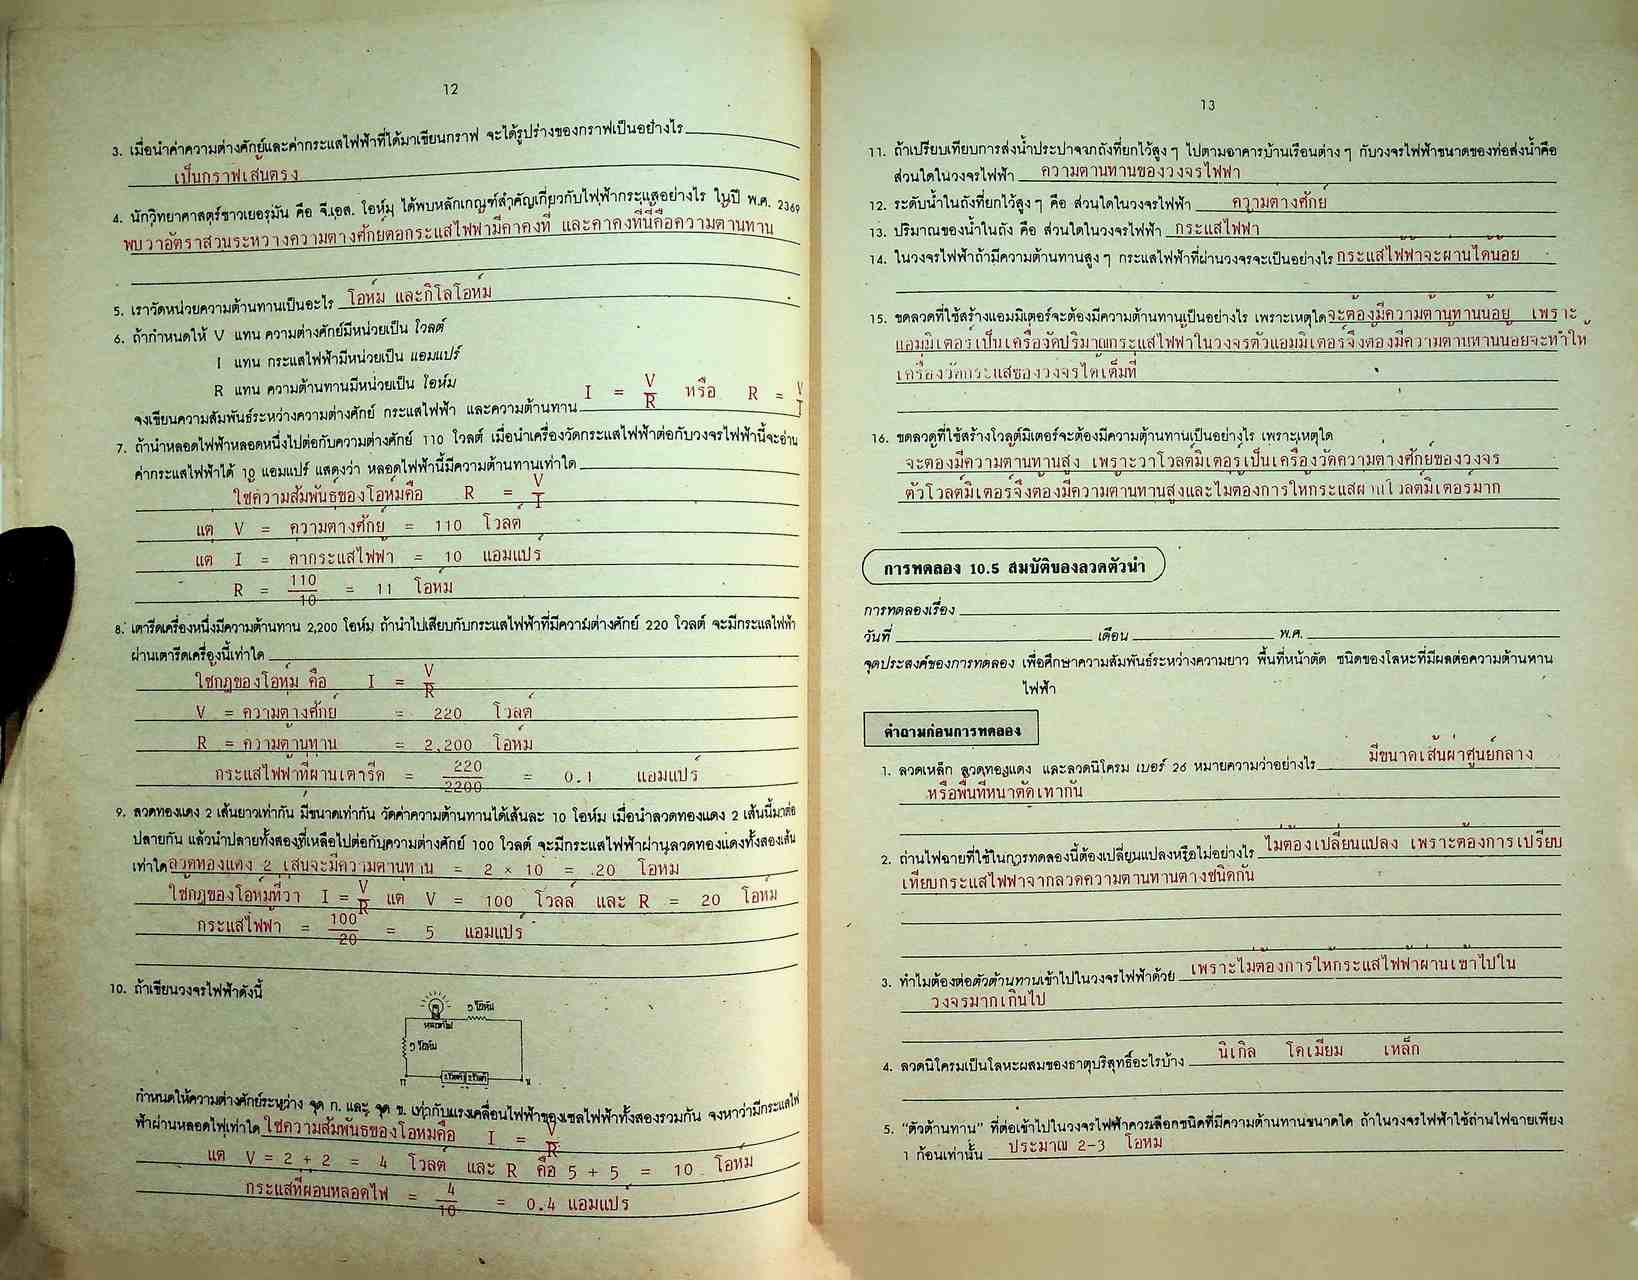 12
3. เมื่อนำค่าความต่างศักย์และค่ากระแสไฟฟ้าที่ได้มาเขียนกราฟ จะได้รูปร่างของกราฟเป็นอย่างไร
เป็นกราฟเส้นตรง
4. นักวิทยาศาสตร์ชาวเยอรมัน คือ จี.เอส. โอห์ม ได้พบหลักเกณฑ์สำคัญเกี่ยวกับไฟฟ้ากระแสอย่างไร ในปี พ.ศ. 2369
พบว่าอัตราส่วนระหว่างความต่างศักย์ต่อกระแสไฟฟ้ามีค่าคงที่ และค่าคงที่นี้คือความต้านทาน
5. เราวัดหน่วยความต้านทานเป็นอะไร โอห์ม และกิโลโอห์ม
6. ถ้ากำหนดให้ V แทน ความต่างศักย์มีหน่วยเป็น โวลต์
I แทน กระแสไฟฟ้ามีหน่วยเป็น แอมแปร์
R แทน ความต้านทานมีหน่วยเป็น โอห์ม
จงเขียนความสัมพันธ์ระหว่างความต่างศักย์ กระแสไฟฟ้า และความต้านทาน I = V/R หรือ R = V/I
7. ถ้านำหลอดไฟฟ้าหลอดหนึ่งไปต่อกับความต่างศักย์ 110 โวลต์ เมื่อนำเครื่องวัดกระแสไฟฟ้าต่อกับวงจรไฟฟ้านี้จะอ่าน
ค่ากระแสไฟฟ้าได้ 10 แอมแปร์ แสดงว่า หลอดไฟฟ้านี้มีความต้านทานเท่าใด
ใช้ความสัมพันธ์ของโอห์มคือ R = V/I
แต่ V = ความต่างศักย์ = 110 โวลต์
แต่ I = ค่ากระแสไฟฟ้า = 10 แอมแปร์
R = 110/10 = 11 โอห์ม
8. เตารีดเครื่องหนึ่งมีความต้านทาน 2,200 โอห์ม ถ้านำไปเสียบกับกระแสไฟฟ้าที่มีความต่างศักย์ 220 โวลต์ จะมีกระแสไฟฟ้า
ผ่านเตารีดเครื่องนี้เท่าใด
ใช้กฎของโอห์ม คือ I = V/R
V = ความต่างศักย์ = 220 โวลต์
R = ความต้านทาน = 2,200 โอห์ม
กระแสไฟฟ้าที่ผ่านเตารีด = 220/2200 = 0.1 แอมแปร์
9. ลวดทองแดง 2 เส้นยาวเท่ากัน มีขนาดเท่ากัน วัดค่าความต้านทานได้เส้นละ 10 โอห์ม เมื่อนำลวดทองแดง 2 เส้นนี้มาต่อ
ปลายกัน แล้วนำปลายทั้งสองที่เหลือไปต่อกับความต่างศักย์ 100 โวลต์ จะมีกระแสไฟฟ้าผ่านลวดทองแดงทั้งสองเส้น
เท่าใด ลวดทองแดง 2 เส้นจะมีความต้านทาน = 2 × 10 = 20 โอห์ม
ใช้กฎของโอห์มที่ว่า I = V/R แต่ V = 100 โวลล์ และ R = 20 โอห์ม
กระแสไฟฟ้า = 100/20 = 5 แอมแปร์
10. ถ้าเขียนวงจรไฟฟ้าดังนี้
๑ โอห์ม
หลอดไฟ
๑ โอห์ม
ก ข
กำหนดให้ความต่างศักย์ระหว่าง จุด ก. และ จุด ข. เท่ากับแรงเคลื่อนไฟฟ้าของเซลไฟฟ้าทั้งสองรวมกัน จงหาว่ามีกระแสไฟ
ฟ้าผ่านหลอดไฟเท่าใด ใช้ความสัมพันธ์ของโอห์มคือ I = V/R
แต่ V = 2 + 2 = 4 โวลต์ และ R คือ 5 + 5 = 10 โอห์ม
กระแสที่ผ่อนหลอดไฟ = 4/10 = 0.4 แอมแปร์
13
11. ถ้าเปรียบเทียบการส่งน้ำประปาจากถังที่ยกไว้สูง ๆ ไปตามอาคารบ้านเรือนต่าง ๆ กับวงจรไฟฟ้าขนาดของท่อส่งน้ำคือ
ส่วนใดในวงจรไฟฟ้า ความต้านทานของวงจรไฟฟ้า
12. ระดับน้ำในถังที่ยกไว้สูง ๆ คือ ส่วนใดในวงจรไฟฟ้า ความต่างศักย์
13. ปริมาณของน้ำในถัง คือ ส่วนใดในวงจรไฟฟ้า กระแสไฟฟ้า
14. ในวงจรไฟฟ้าถ้ามีความต้านทานสูง ๆ กระแสไฟฟ้าที่ผ่านวงจรจะเป็นอย่างไร กระแสไฟฟ้าจะผ่านได้น้อย
15. ขดลวดที่ใช้สร้างแอมมิเตอร์จะต้องมีความต้านทานเป็นอย่างไร เพราะเหตุใด จะต้องมีความต้านทานน้อย เพราะ
แอมมิเตอร์เป็นเครื่องวัดปริมาณกระแสไฟฟ้าในวงจรตัวแอมมิเตอร์จึงต้องมีความต้านทานน้อยจะทำให้
เครื่องวัดกระแสของวงจรได้เต็มที่
16. ขดลวดที่ใช้สร้างโวลต์มิเตอร์จะต้องมีความต้านทานเป็นอย่างไร เพราะเหตุใด
จะต้องมีความต้านทานสูง เพราะว่าโวลต์มิเตอร์เป็นเครื่องวัดความต่างศักย์ของวงจร
ตัวโวลต์มิเตอร์จึงต้องมีความต้านทานสูงและไม่ต้องการให้กระแสผ่านโวลต์มิเตอร์มาก
การทดลอง 10.5 สมบัติของลวดตัวนำ
การทดลองเรื่อง
วันที่ เดือน พ.ศ.
จุดประสงค์ของการทดลอง เพื่อศึกษาความสัมพันธ์ระหว่างความยาว พื้นที่หน้าตัด ชนิดของโลหะที่มีผลต่อความต้านทาน
ไฟฟ้า
คำถามก่อนการทดลอง
1. ลวดเหล็ก ลวดทองแดง และลวดนิโครม เบอร์ 26 หมายความว่าอย่างไร มีขนาดเส้นผ่าศูนย์กลาง
หรือพื้นที่หน้าตัดเท่ากัน
2. ถ่านไฟฉายที่ใช้ในการทดลองนี้ต้องเปลี่ยนแปลงหรือไม่อย่างไร ไม่ต้องเปลี่ยนแปลง เพราะต้องการเปรียบ
เทียบกระแสไฟฟ้าจากลวดความต้านทานต่างชนิดกัน
3. ทำไมต้องต่อตัวต้านทานเข้าไปในวงจรไฟฟ้าด้วย เพราะไม่ต้องการให้กระแสไฟฟ้าผ่านเข้าไปใน
วงจรมากเกินไป
4. ลวดนิโครมเป็นโลหะผสมของธาตุบริสุทธิ์อะไรบ้าง นิเกิล โคเมียม เหล็ก
5. “ตัวต้านทาน” ที่ต่อเข้าไปในวงจรไฟฟ้าควรเลือกชนิดที่มีความต้านทานขนาดใด ถ้าในวงจรไฟฟ้าใช้ถ่านไฟฉายเพียง
1 ก้อนเท่านั้น ประมาณ 2-3 โอห์ม